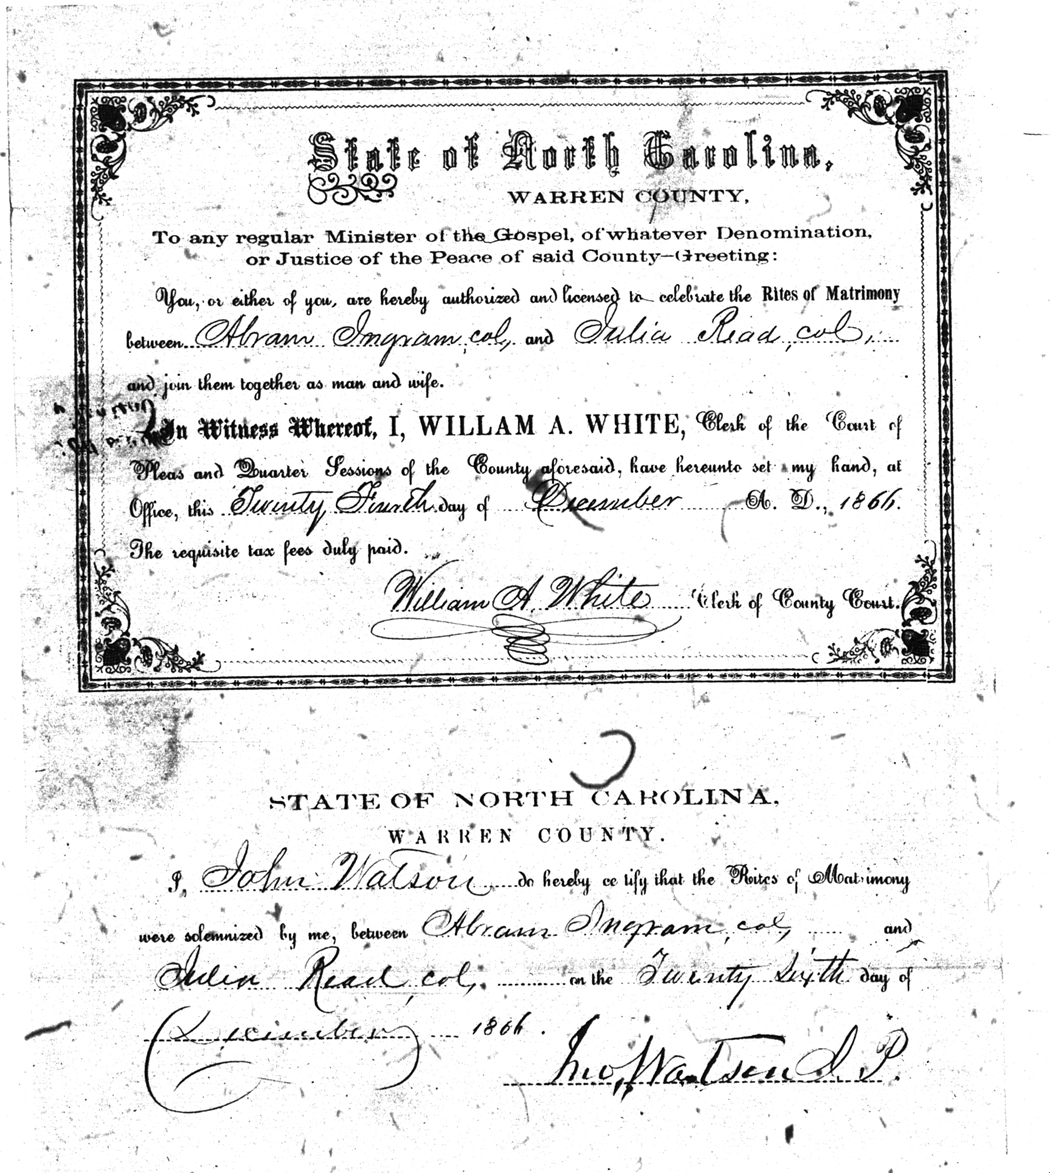 State of North Carolina,
WARREN COUNTY,
To any regular Minister of the Gospel, of whatever Denomination,
or Justice of the Peace of said County—Greeting:
You, or either of you, are hereby authorized and licensed to celebrate the Rites of Matrimony
between Abram Ingram, col, and Julia Read, col,
and join them together as man and wife.
In Witness Whereof, I, WILLAM A. WHITE, Clerk of the Court of
Pleas and Quarter Sessions of the County aforesaid, have hereunto set my hand, at
Office, this Twenty Fourth day of December A. D., 1866.
The requisite tax fees duly paid.
William A. White Clerk of County Court.
STATE OF NORTH CAROLINA,
WARREN COUNTY.
I, John Watson do hereby ce tify that the Rites of Matrimony
were solemnized by me, between Abram Ingram, col, and
Julia Read, col, on the Twenty Sixth day of
December 1866.
Jno, Watson J. P.